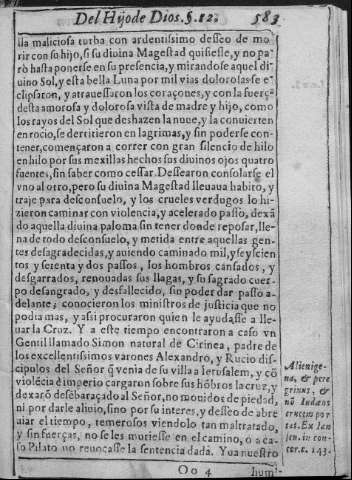 Del Hijo de Dios. §. 12. 583
lla maliciosa turba con ardentissimo desseo de mo-
rir con su hijo, si su diuina Magestad quisiesse, y no pa-
rò hasta ponerse en su presencia, y mirandose aquel di-
uino Sol, y esta bella Luna por mil vias dolorosas se e-
clipsaron, y atrauessaron los coraçones, y con la fuerça
desta amorosa y dolorosa vista de madre y hijo, como
los rayos del Sol que deshazen la nuue, y la conuierten
en rocio, se derritieron en lagrimas, y sin poderse con-
tener, començaron a correr con gran silencio de hilo
en hilo por sus mexillas hechos sus diuinos ojos quatro
fuentes, sin saber como cessar. Dessearon consolarse el
vno al otro, pero su diuina Magestad lleuaua habito, y
traje para desconsuelo, y los crueles verdugos lo hi-
zieron caminar con violencia, y acelerado passo, dexã
do aquella diuina paloma sin tener donde reposar, lle-
na de todo desconsuelo, y metida entre aquellas gen-
tes desagradecidas, y auiendo caminado mil, y seyscien
tos y sesenta y dos passos, los hombros cansados, y
desgarrados, renouadas sus llagas, y su sagrado cuer-
po desangrado, y desfallecido, sin poder dar passo a-
delante, conocieron los ministros de justicia que no
podia mas, y assi procuraron quien le ayudasse a lle-
uar la Cruz. Y a este tiempo encontraron a caso vn
Gentil llamado Simon natural de Cirinea, padre de
los excellentissimos varones Alexandro, y Rucio dis-
cipulos del Señor q̃ venia de su villa a Ierusalem, y cõ
violẽcia è imperio cargaron sobre sus hõbros la cruz, y
dexarõ desẽbaraçado al Señor, no mouidos de piedad,
ni por darle aliuio, sino por su interes, y desseo de abre
uiar el tiempo, temerosos viendolo tan maltratado,
y sin fuerças, no se les muriesse en el camino, o a ca-
so Pilato no reuocasse la sentencia dada. Y va nuestro
Oo 4 hum-
Alienige-
na, & pere
grinus, &
nõ Iudæus
crucem por
tat. Ex Ian
sen. in con-
cor. c. 143.